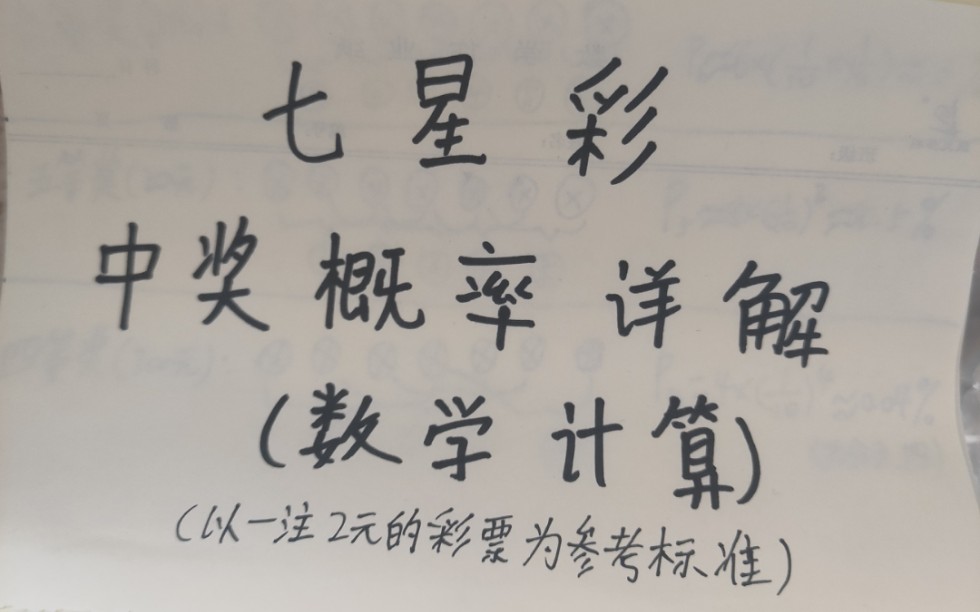 七星彩
中奖概率详解
(数学计算)
(以一注2元的彩票为参考标准)